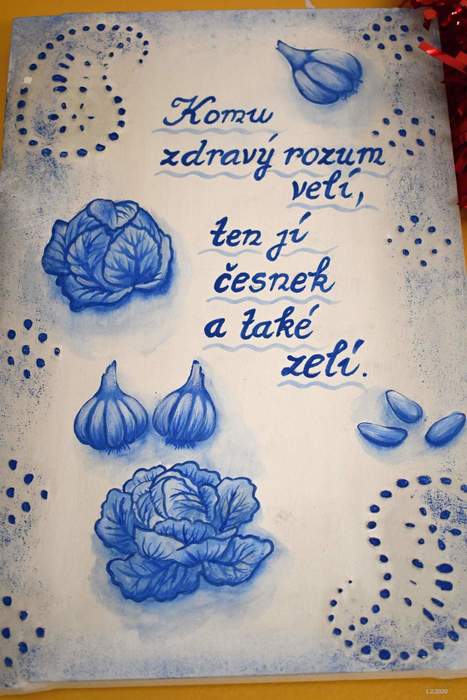 Komu
zdravý rozum
velí,
ten jí
česnek
a také
zelí.
1.2.2020